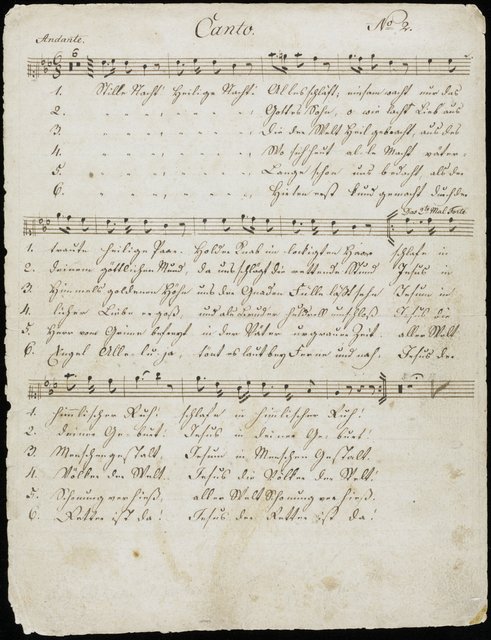 Canto.
No 2.
Andante.
6
1. Stille Nacht! Heilige Nacht! Alles schläft; einsam wacht nur das
2. „ „ „ „ „ „ Gottes Sohn, o wie lacht Lieb aus
3. „ „ „ „ „ „ Die der Welt Heil gebracht, aus des
4. „ „ „ „ „ „ Wo sich heut alle Macht väter-
5. „ „ „ „ „ „ Lange schon uns bedacht, als der
6. „ „ „ „ „ „ Hirten erst kund gemacht durch der
Das 2te Mal Forte
1. traute heilige Paar. Holder Knab im lockigten Haar, schlafe in
2. deinem göttlichen Mund, da uns schlägt die rettende Stund. Jesus in
3. Himmels goldenen Höhn uns der Gnaden Fülle läßt sehn Jesum in
4. licher Liebe ergoß, und als Bruder huldvoll umschloß Jesus die
5. Herr vom Grime befreyt, in der Väter urgrauer Zeit aller Welt
6. Engel Alle lu ja, tönt es laut bey Ferne und nah, Jesus der
1. himmlischer Ruh! schlafe in himlischer Ruh!
2. deiner Ge-burt! Jesus in deiner Ge-burt!
3. Menschengestalt. Jesum in Menschen Gestalt.
4. Völker der Welt. Jesus die Völker der Welt!
5. Schonung verhieß. aller Welt Schonung verhieß.
6. Retter ist da! Jesus der Retter ist da!